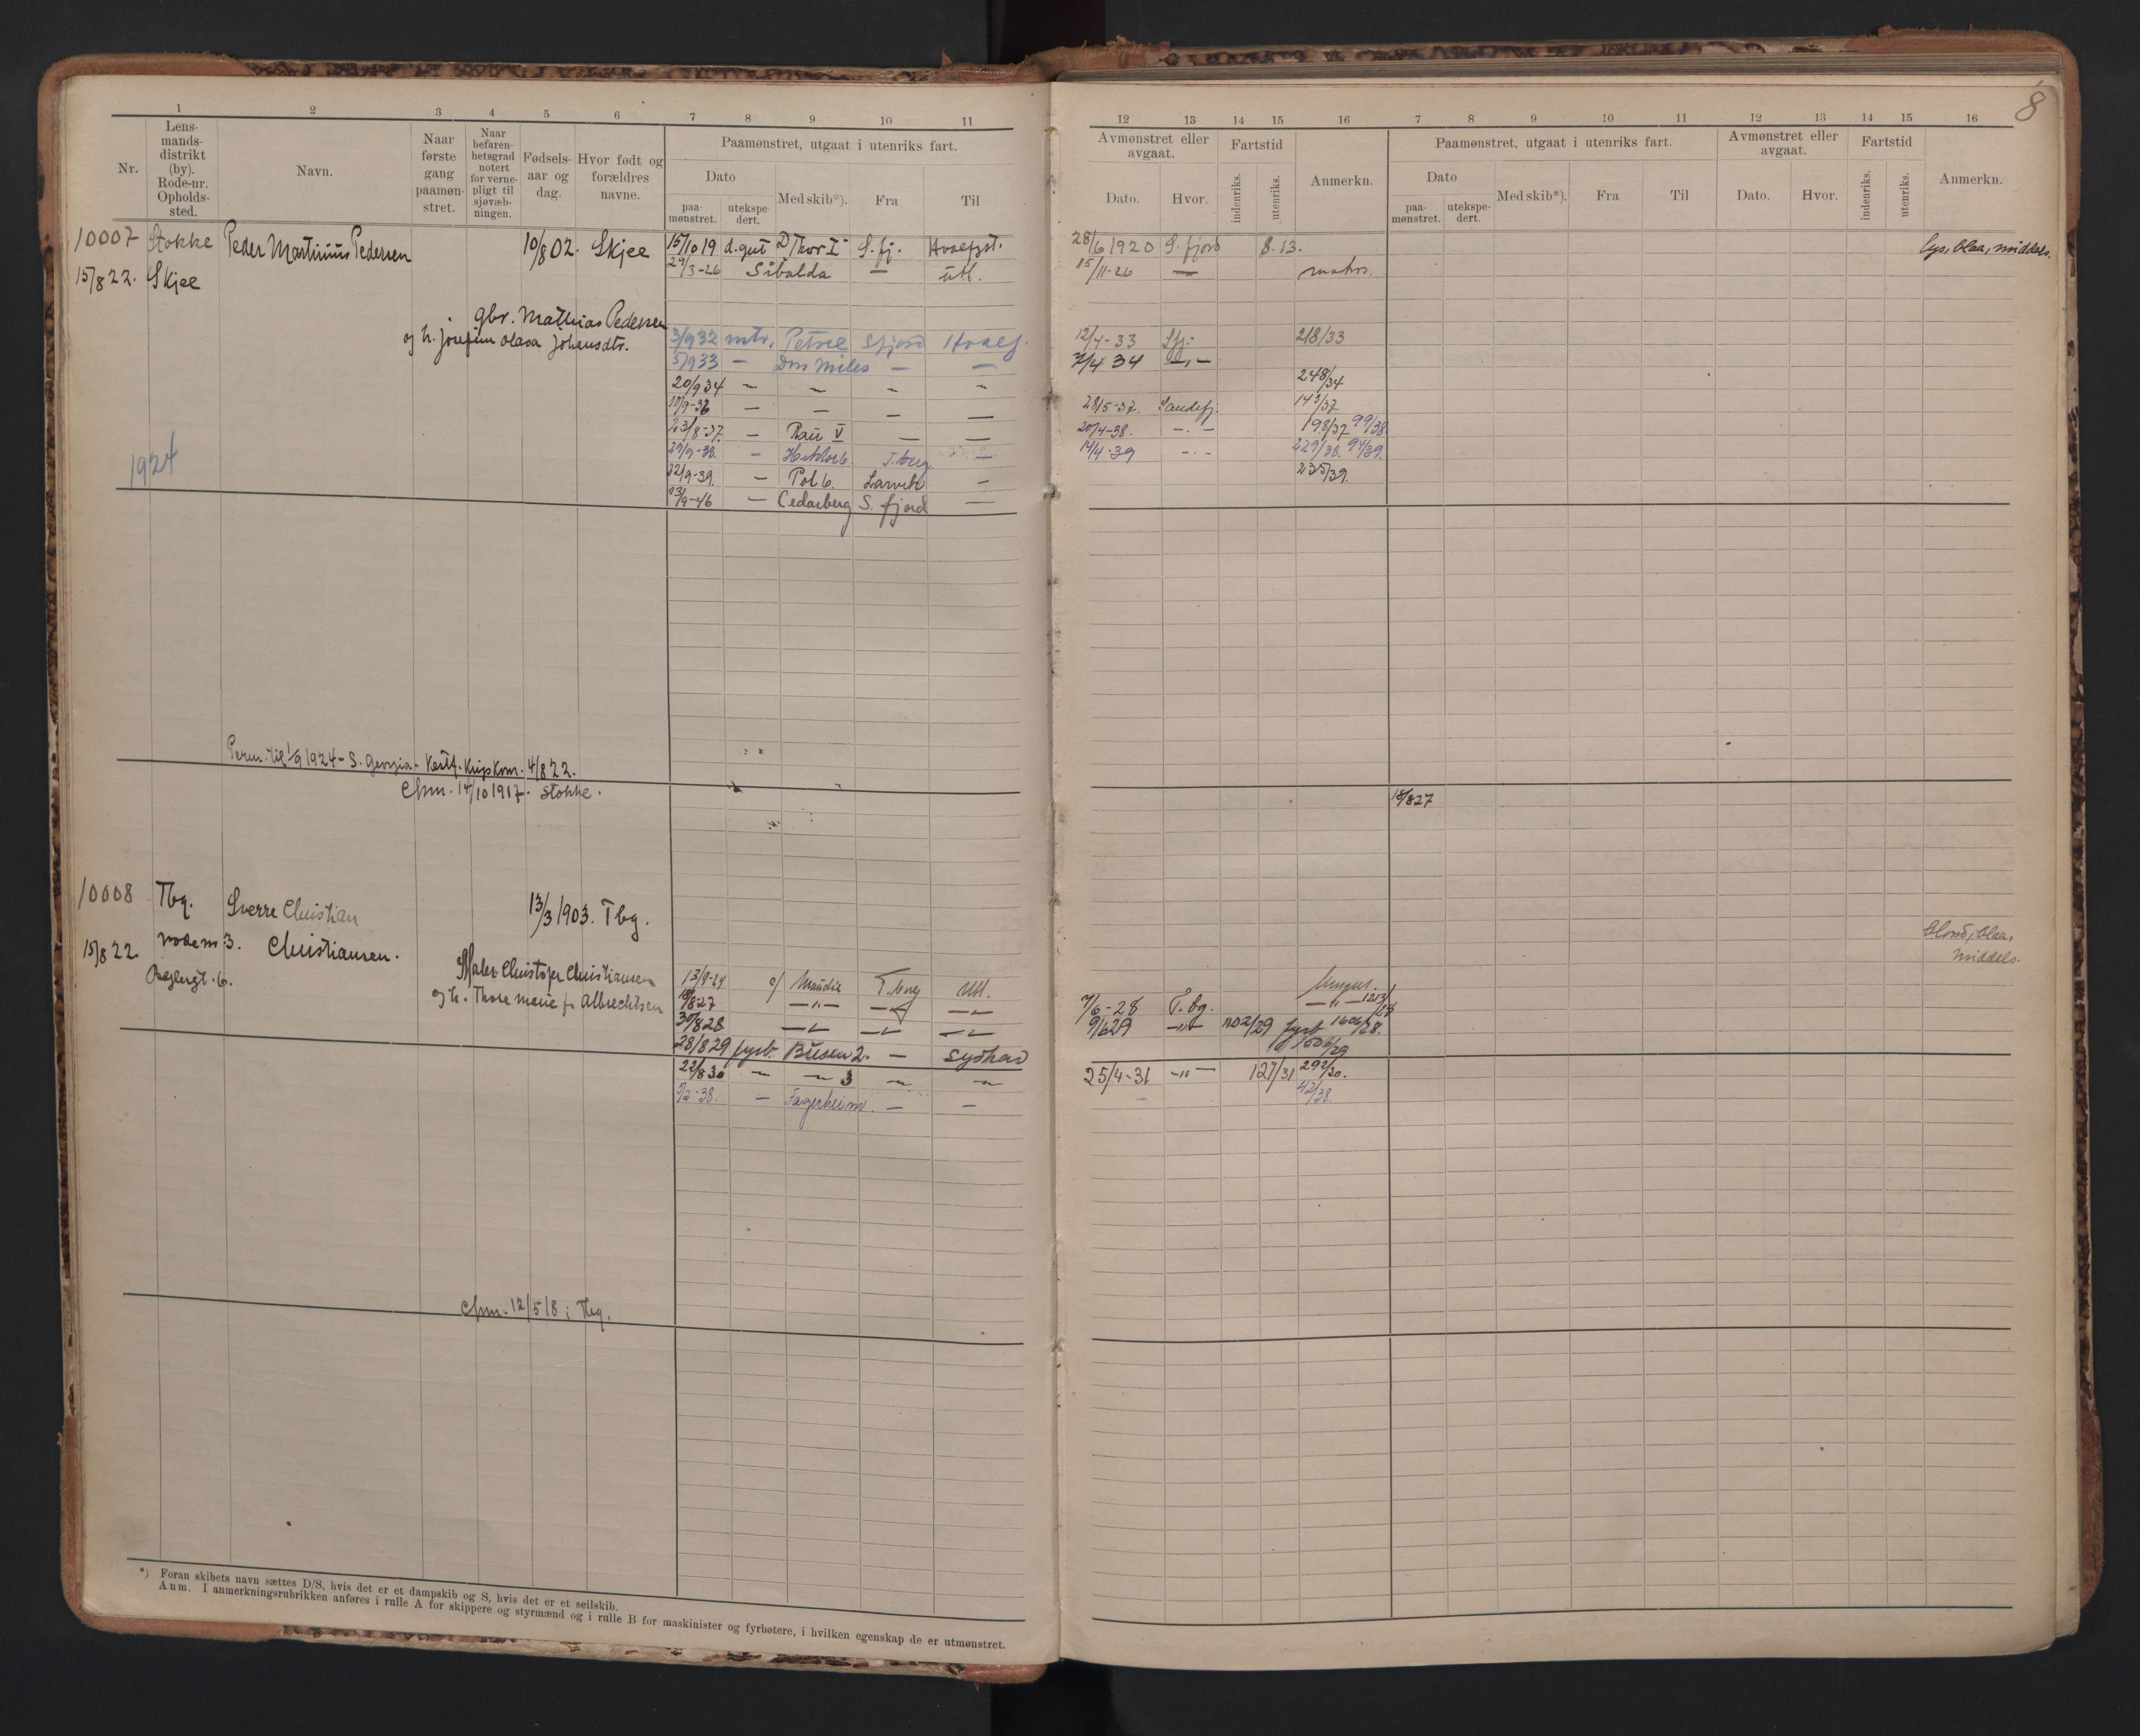 8
1 2 3 4 5 6 7 8 9 10 11
Nr.
Lens-
mands-
distrikt
(by).
Rode-nr.
Opholds-
sted.
Navn.
Naar
første
gang
paamøn-
stret.
Naar
befaren-
hetsgrad
notert
for verne-
pligt til
sjøvæb-
ningen.
Fødsels-
aar og
dag.
Hvor født og
forældres
navne.
Paamønstret, utgaat i utenriks fart.
Dato
paa-
mønstret.
utekspe-
dert.
Med skib*).
Fra
Til
12 13 14 15 16 7 8 9 10 11 12 13 14 15 16
Avmønstret eller
avgaat.
Dato.
Hvor.
Fartstid
indenriks.
utenriks.
Anmerkn.
Paamønstret, utgaat i utenriks fart.
Dato
paa-
mønstret.
utekspe-
dert.
Med skib*).
Fra
Til
Avmønstret eller
avgaat.
Dato.
Hvor.
Fartstid
indenriks.
utenriks.
Anmerkn.
10007 Stokke Peder Martinius Pedersen 10/8 02. Skjee 15/10 19 d.gut D Thor I S. fj. Hvalfgst. 28/6 1920 S. fjord 8. 13. lys, blaa, middels.
15/8 22. Skjee 29/3-26 Sibalda — utl. 15/11-26 — matros.
gbr. Mathias Pedersen
og h. Josefine Olava Johansdtr. 3/9 32 mtr. Petrel Sfjord Hvalf. 12/4-33 Sfj. 218/33
5/9 33 — Don Miles — — 7/4 34 —"—
20/9 34 — — — — 248/34
10/9-36 — — — — 28/5-37. Sandefj. 143/37
23/8-37. — Rau V — — 20/4-38. —.— 198/37 99/38
29/9-38. — Hektor 6. T.berg. — 14/4-39 —.— 229/38. 94/39.
1924 22/9-39. — Pol 6. Larvik — 235/39.
13/9-46 — Cedarberg S. fjord —
Perm. til 1/9 1924 - S. Georgia - 4/8 22.
14/10 1917. Stokke.
18/8 27
10008 Tbg. Sverre Christian 13/3 1903. Tbg.
15/8 22. rode nr 3. Christiansen. blond, blaa,
middels.
6. Maler Christofer Christiansen 13/9-24 Maudie T.berg utl.
og h. Thora Marie f. Albrechtsen 18/8 27 —"— — — 7/6-28 T.bg. —"— 1213/28
30/8 28 — — — 9/6 29 —"— 1102/29 fyrb 1606/28.
28/8 29 fyrb. Busen 2. — Sydhav 1506/29
22/8 30 — — 3 — — 25/4-31 —"— 127/31 292/30.
5/2-38. — Fagerheim — — 42/38.
12/5 18 i Tbg.
*) Foran skibets navn sættes D/S, hvis det er et dampskib og S, hvis det er et seilskib.
Anm. I anmerkningsrubrikken anføres i rulle A for skippere og styrmænd og i rulle B for maskinister og fyrbøtere, i hvilken egenskap de er utmønstret.